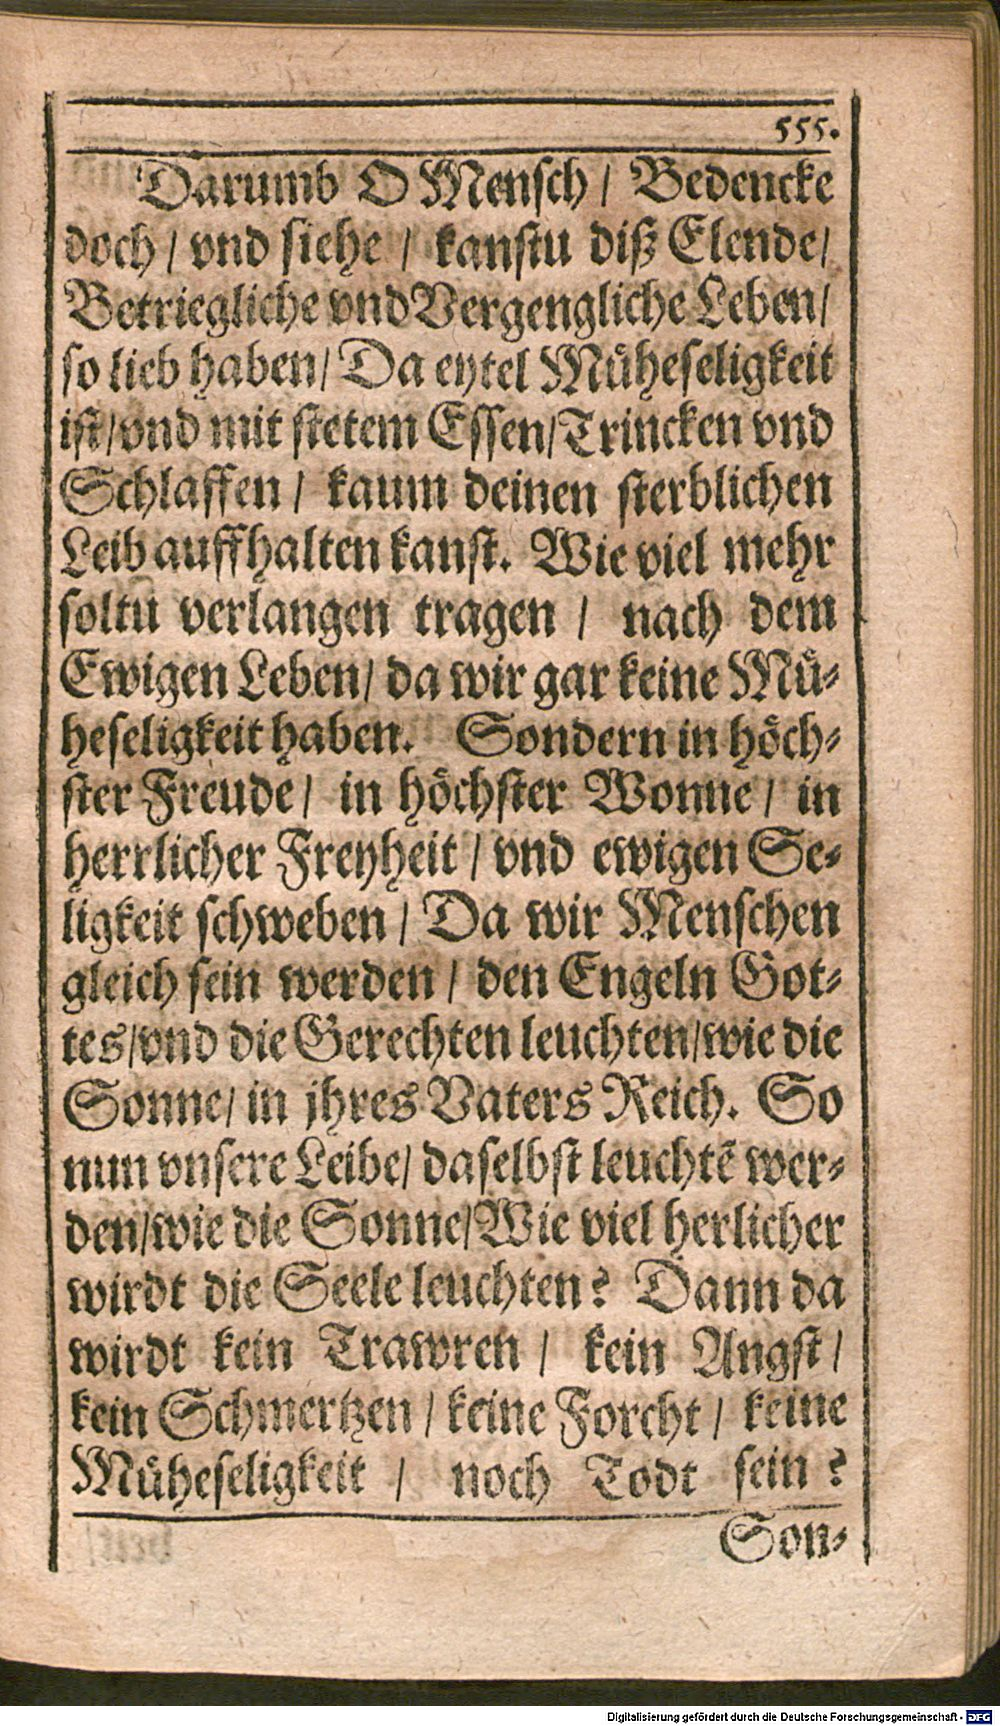 555.
Darumb O Mensch / Bedencke
doch / vnd siehe / kanstu diß Elende /
Betriegliche vnd Vergengliche Leben /
so lieb haben / Da eytel Muͤheseligkeit
ist / vnd mit stetem Essen / Trincken vnd
Schlaffen / kaum deinen sterblichen
Leib auffhalten kanst. Wie viel mehr
soltu verlangen tragen / nach dem
Ewigen Leben / da wir gar keine Muͤ-
heseligkeit haben. Sondern in hoͤch-
ster Freude / in hoͤchster Wonne / in
herrlicher Freyheit / vnd ewigen Se-
ligkeit schweben / Da wir Menschen
gleich sein werden / den Engeln Got-
tes / vnd die Gerechten leuchten / wie die
Sonne / in jhres Vaters Reich. So
nun vnsere Leibe / daselbst leuchtẽ wer-
den / wie die Sonne / Wie viel herlicher
wirdt die Seele leuchten? Dann da
wirdt kein Trawren / kein Angst /
kein Schmertzen / keine Forcht / keine
Muͤheseligkeit / noch Todt sein?
Son-
Digitalisierung gefördert durch die Deutsche Forschungsgemeinschaft - DFG